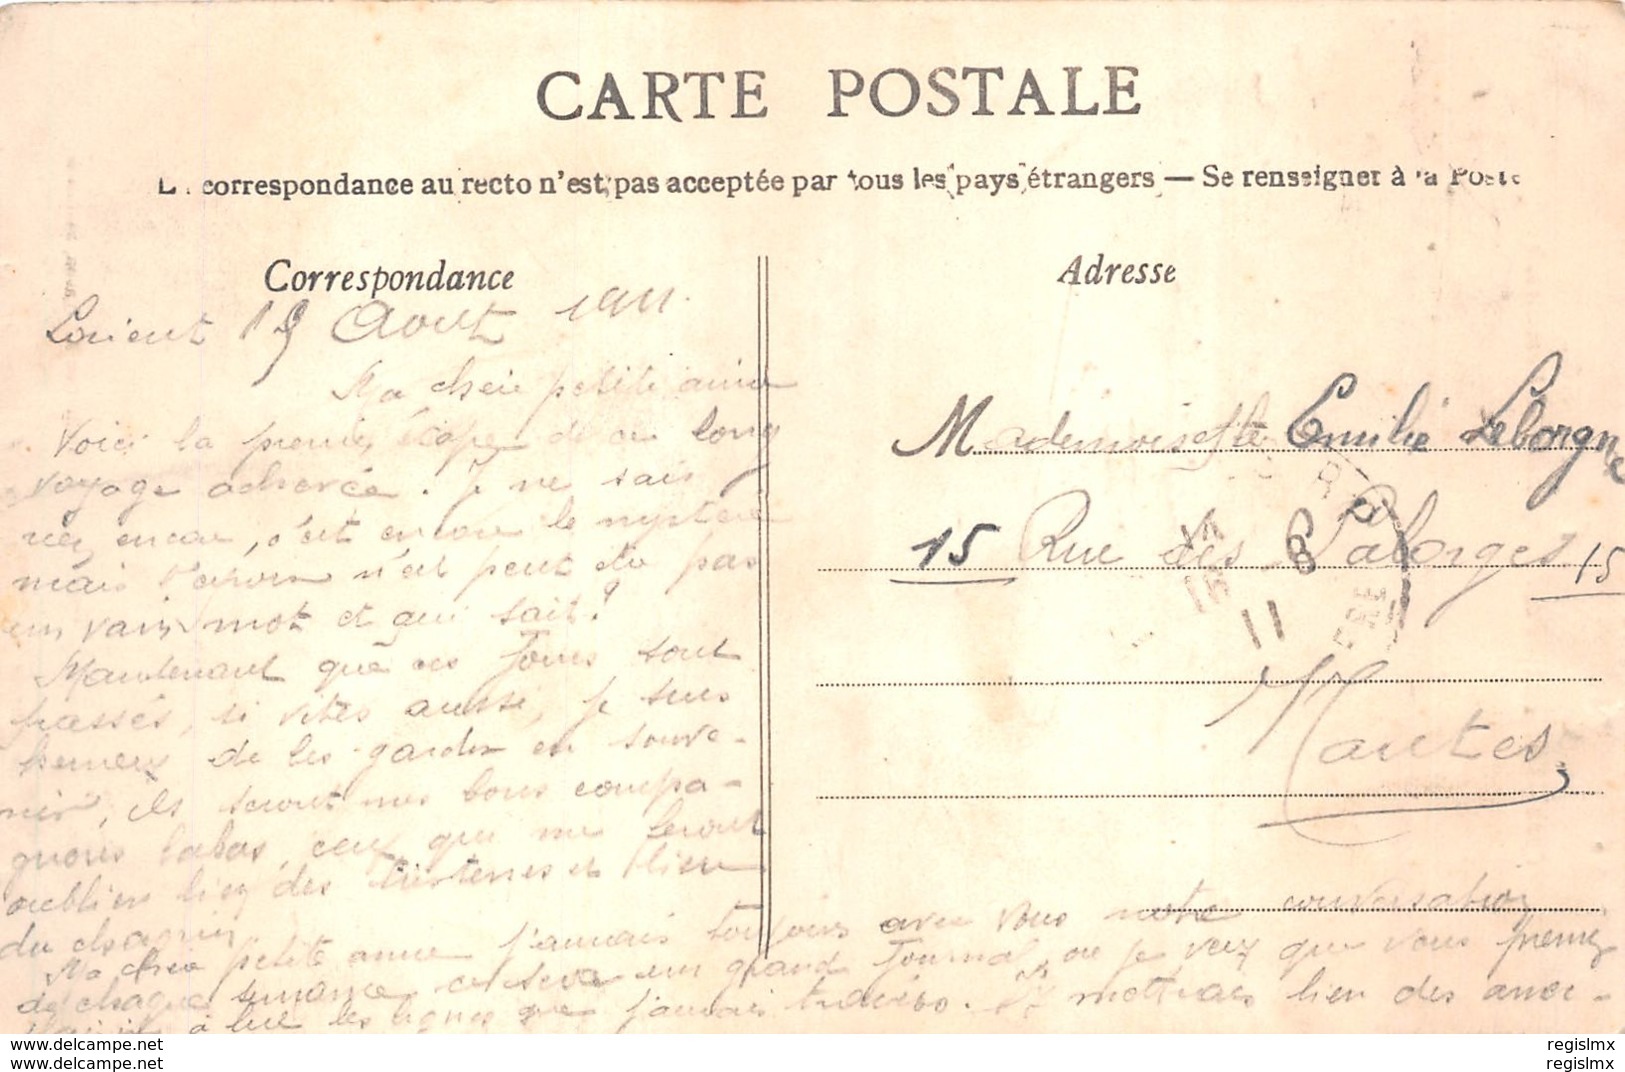 CARTE POSTALE
correspondance au recto n'est pas acceptée par tous les pays étrangers — Se renseigner à la Poste
Correspondance
Adresse
Lorient 19 Aout 1911.
Ma chere petite amie
Voici la premiere étape de ce long
voyage achevée. Je ne sais
rien encore, c'est encore le mystere
mais n'est peut etre pas
un vain mot et qui sait?
Maintenant que ces jours sont
passés, si vites aussi, je suis
heureux de les garder en souve-
nir, ils seront mes bons compa-
gnons labas, ceux qui me feront
oublier bien des tristesses et bien
du chagrin.
Ma chere petite amie j'aimais toujours avec vous notre conversation
de chaque semaine ce sera un grand journal, ou je veux que vous preniez
plaisir à lire les lignes que j'aurais tracées. J'y mettrais bien des anoi-
Mademoiselle Emilie Leborgne
15 Rue des Palorges 15
Nantes
16 - 8
11
regislmx
regislmx
regislmx
regislmx